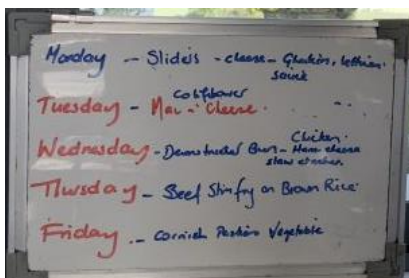 Monday - Sliders - cheese - Gherkins, lettuce.
sauce
Cauliflower
Tuesday - Mac n' Cheese.
Chicken.
Wednesday - Deconstructed Burn - Ham cheese
slaw
Thursday - Beef Stirfry on Brown Rice.
Friday. - Cornish Pasties Vegetable